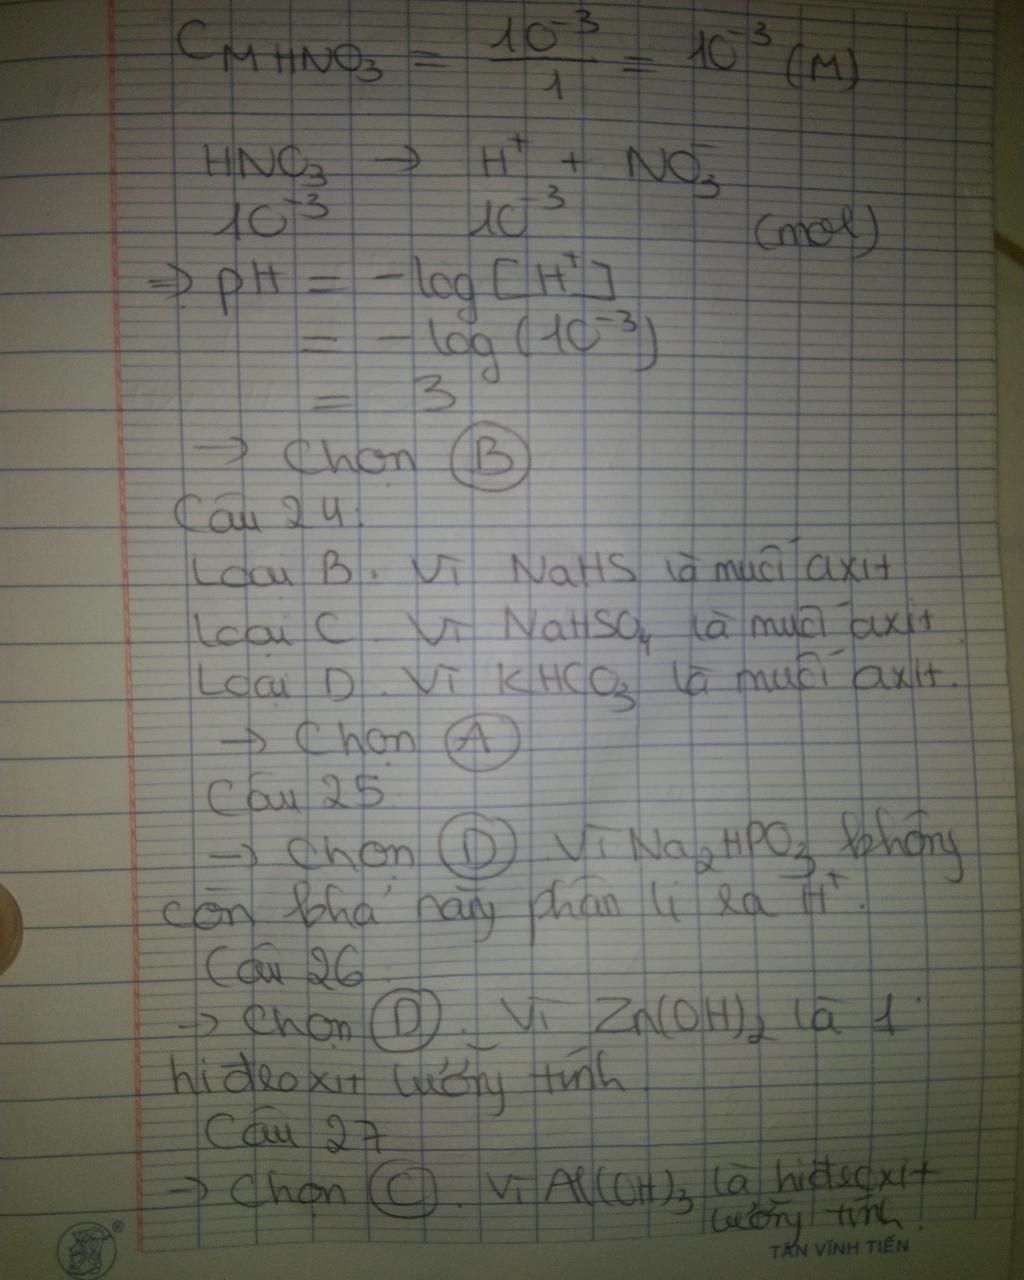 CM HNO₃ = 10⁻³/1 = 10⁻³ (M)
HNO₃ → H⁺ + NO₃⁻
10⁻³ 10⁻³ (mol)
⇒ pH = -log[H⁺]
= -log(10⁻³)
= 3
→ Chọn B
Câu 24:
Loại B. Vì NaHS là muối axit
Loại C. Vì NaHSO₄ là muối axit
Loại D. Vì KHCO₃ là muối axit.
→ Chọn A
Câu 25
→ Chọn D. Vì Na₂HPO₃ không
còn khả năng phân li ra H⁺.
Câu 26
→ Chọn D. Vì Zn(OH)₂ là 1
hiđroxit lưỡng tính
Câu 27
→ Chọn C. Vì Al(OH)₃ là hiđroxit
lưỡng tính.
TÂN VĨNH TIẾN